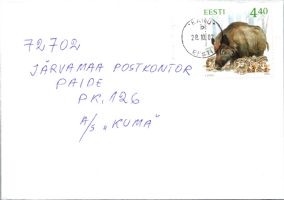 EESTI 4.40
28.10.0
EESTI
72702
JÄRVAMAA POSTKONTOR
PAIDE
PK. 126
A/S „KUMA"